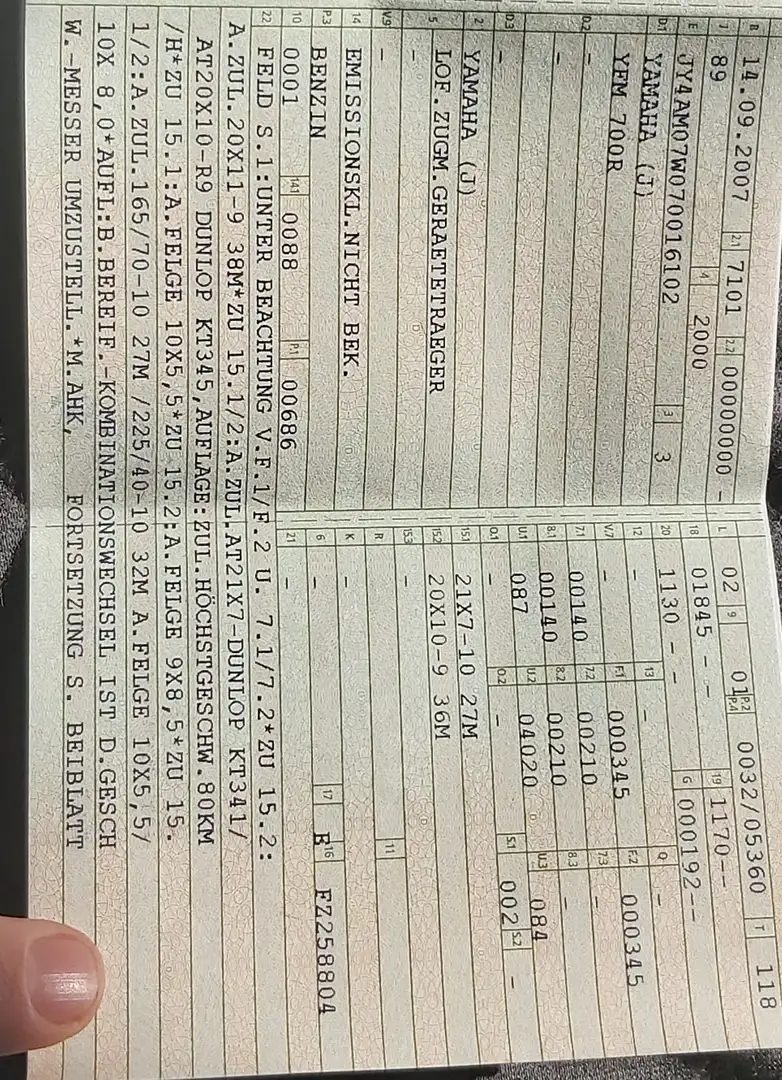 B 14.09.2007 2.1 7101 2.2 000000000 -
J 89 4 2000
E JY4AM07W070016102 3 3
D.1 YAMAHA (J)
YFM 700R
D.2 -
-
D.3 -
2 YAMAHA (J)
5 LOF.ZUGM.GERAETETRAEGER
-
V.9 -
14 EMISSIONSKL.NICHT BEK.
P.3 BENZIN
10 0001 14.1 0088 P.1 00686
L 02 9 01 P.2 P.4 0032/05360 T 118
18 01845 - - 19 1170--
20 1130 - - G 000192--
12 - 13 - Q -
V.7 - F.1 000345 F.2 000345
7.1 00140 7.2 00210 7.3 -
8.1 00140 8.2 00210 8.3 -
U.1 087 U.2 04020 U.3 084
O.1 - O.2 - S.1 002 S.2 -
15.1 21X7-10 27M
15.2 20X10-9 36M
15.3 -
R 11
K -
6 - 17 E 16 FZ258804
21 -
22 FELD S.1:UNTER BEACHTUNG V.F.1/F.2 U. 7.1/7.2*ZU 15.2:
A.ZUL.20X11-9 38M*ZU 15.1/2:A.ZUL.AT21X7-DUNLOP KT341/
AT20X10-R9 DUNLOP KT345,AUFLAGE:ZUL.HÖCHSTGESCHW.80KM
/H*ZU 15.1:A.FELGE 10X5,5*ZU 15.2:A.FELGE 9X8,5*ZU 15.
1/2:A.ZUL.165/70-10 27M /225/40-10 32M A.FELGE 10X5,5/
10X 8,0*AUFL:B.BEREIF.-KOMBINATIONSWECHSEL IST D.GESCH
W.-MESSER UMZUSTELL.*M.AHK, FORTSETZUNG S. BEIBLATT